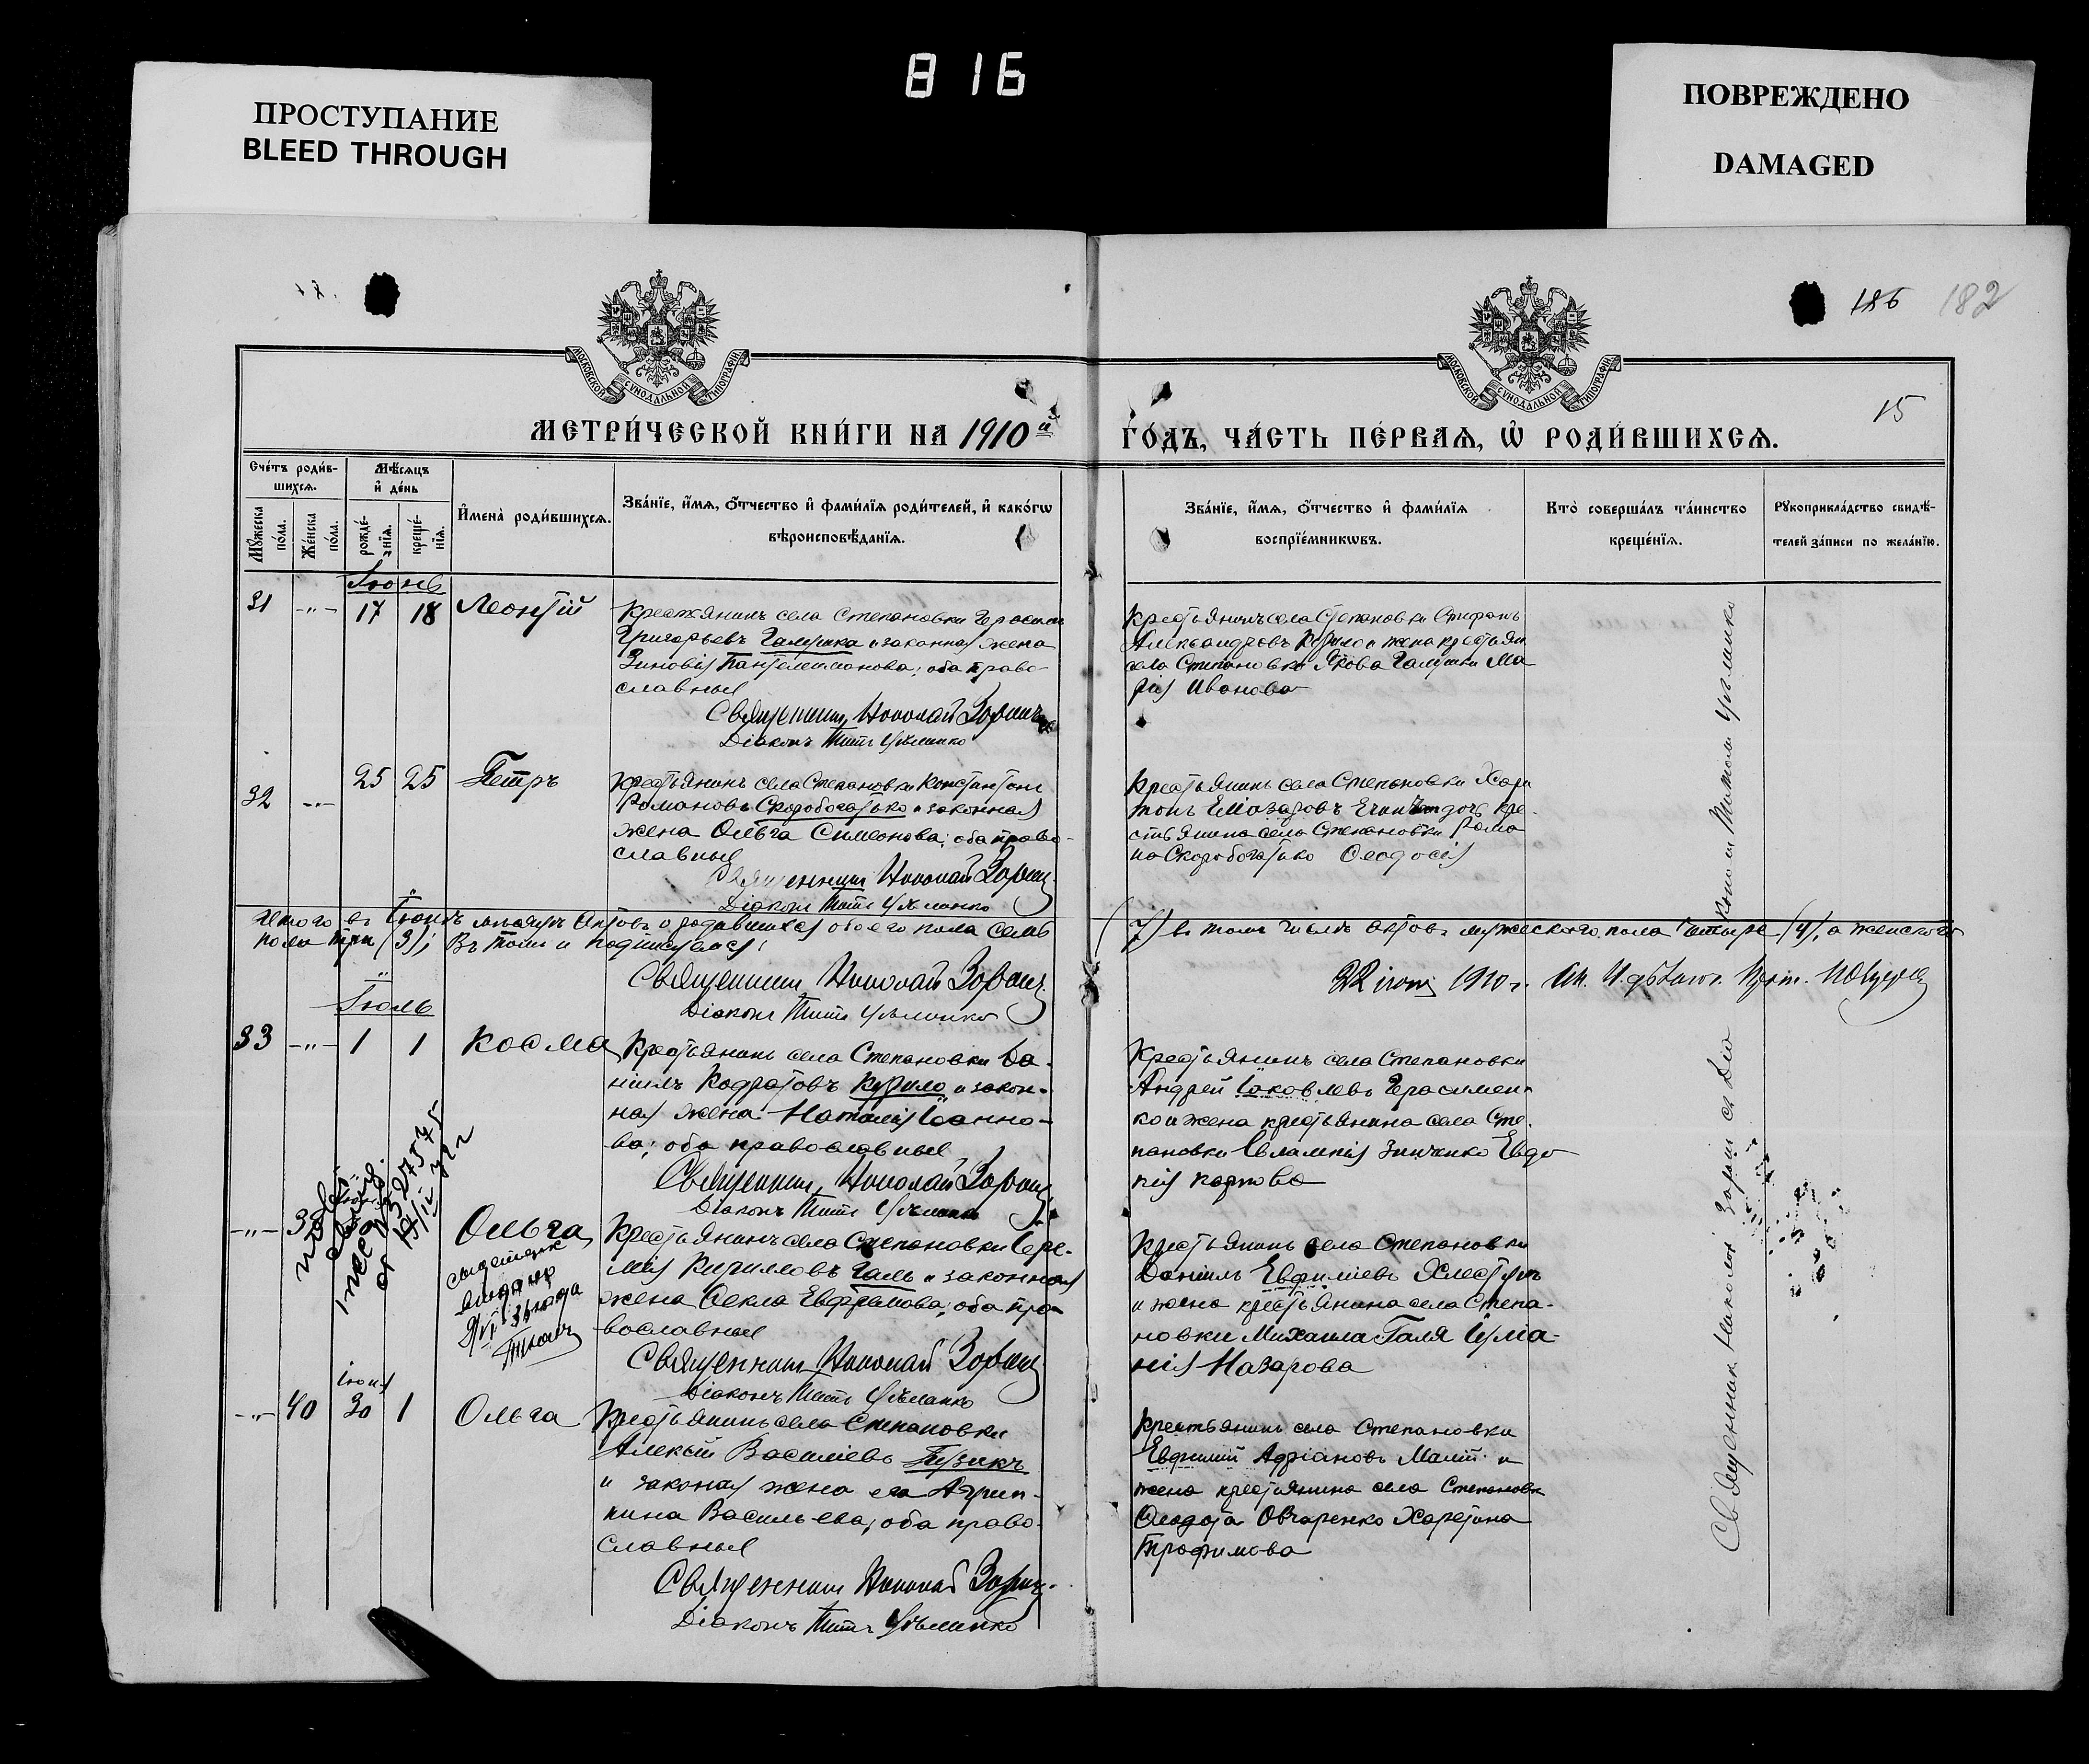 816
ПРОСТУПАНИЕ
BLEED THROUGH
ПОВРЕЖДЕНО
DAMAGED
186 182
15
МОСКОВСКОЙ СѴНОДАЛЬНОЙ ТИПОГРАФІИ
МОСКОВСКОЙ СѴНОДАЛЬНОЙ ТИПОГРАФІИ
МЕТРИ́ЧЕСКОЙ КНИ́ГИ НА 1910й
ГО́ДЪ, ЧА́СТЬ ПЕ́РВАѦ, Ѡ҆ РОДИ́ВШИХСѦ.
Сче́тъ роди́в-
шихсѧ.
Мѣ́сѧцъ
и҆ де́нь
Мꙋ́жеска по́ла.
Же́нска по́ла.
рожде́-
нїѧ.
креще́-
нїѧ.
И҆мена̀ роди́вшихсѧ.
Зва́нїе, и҆́мѧ, ѻ҆́тчество и҆ фами́лїѧ роди́телей, и҆ како́гѡ
вѣроисповѣ́данїѧ.
Зва́нїе, и҆́мѧ, ѻ҆́тчество и҆ фами́лїѧ
воспрїе́мникѡвъ.
Кто̀ соверша́лъ та́инство
креще́нїѧ.
Рꙋкоприкла́дство свидѣ́-
телей за́писи по жела́нїю.
Іюнь
31 -"- 17 18 Леонтій
Крестьянинъ села Степановки Герасимъ
Григорьевъ Галушка и законная жена
Зиновія Пантелеимонова; оба право-
славные
Священникъ Николай Зорин
Діаконъ Титъ
Крестьянинъ села Степановки Стефанъ
Александровъ Курило и жена крестьян
села Степановки Якова Галушки Ма
рія Иванова
32 -"- 25 25 Петръ
Крестьянинъ села Степановки Константинъ
Романовъ Скоробогатько и законная
жена Ольга Симеонова; оба право-
славные
Священникъ Николай Зорин
Діаконъ Титъ
Крестьянинъ села Степановки Хари
тонъ Еліазаровъ дочь кре-
стьянина села Степановки Рома
на Скоробогатько Ѳеодосія
Итого въ Іюнѣ мѣсяцѣ актовъ о родившихся обоего пола семь
(7) въ томъ числѣ актовъ мужескаго пола четыре (4), а женскаго
пола три (3); Въ томъ и подписуемся:
Священникъ Николай Зорин
Діаконъ Титъ
1910 г.
Іюль
33 -"- 1 1 Косма
Крестьянинъ села Степановки Да-
ніилъ Кодратовъ Курило и закон-
ная жена Наталія Іоанно-
ва; оба православные
Священникъ Николай Зорин
Діаконъ Титъ
Крестьянинъ села Степановки
Андрей Іаковлевъ Герасимен-
ко и жена крестьянина села Сте-
пановки Евлампія Зинченко Евдо
кія Карпова
-"- Ольга
Крестьянинъ села Степановки Іере-
мія Кирилловъ Галь и законная
жена Ѳекла Евфремова; оба пра-
вославные
Священникъ Николай Зорин
Діаконъ Титъ
Крестьянинъ села Степановки
Даніилъ Евфиміевъ
и жена крестьянина села Степа-
новки Михаила Галя Іуліа-
нія Назарова
-"- 40 іюня 30 1 Ольга
Крестьянинъ села Степановки
Алексій Василіевъ Пузикъ
и законная жена его Агрип-
пина Васильева; оба право-
славные
Священникъ Николай Зорин
Діаконъ Титъ
Крестьянинъ села Степановки
Евфимій Адріановъ и
жена крестьянина села Степановки
Ѳеодота Овчаренко Харитина
Трофимова
Священникъ Николай Зорин съ Діа
кономъ Титомъ